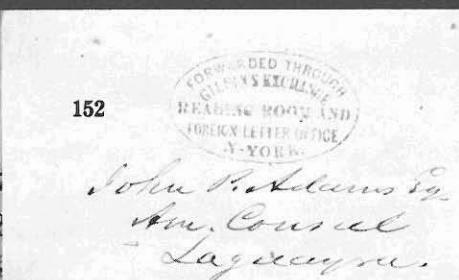 152
FORWARDED THROUGH
GILPIN'S EXCHANGE
READING ROOM AND
FOREIGN LETTER OFFICE
N-YORK.
John P. Adams Esq.
Am. Consul
Laguayra.